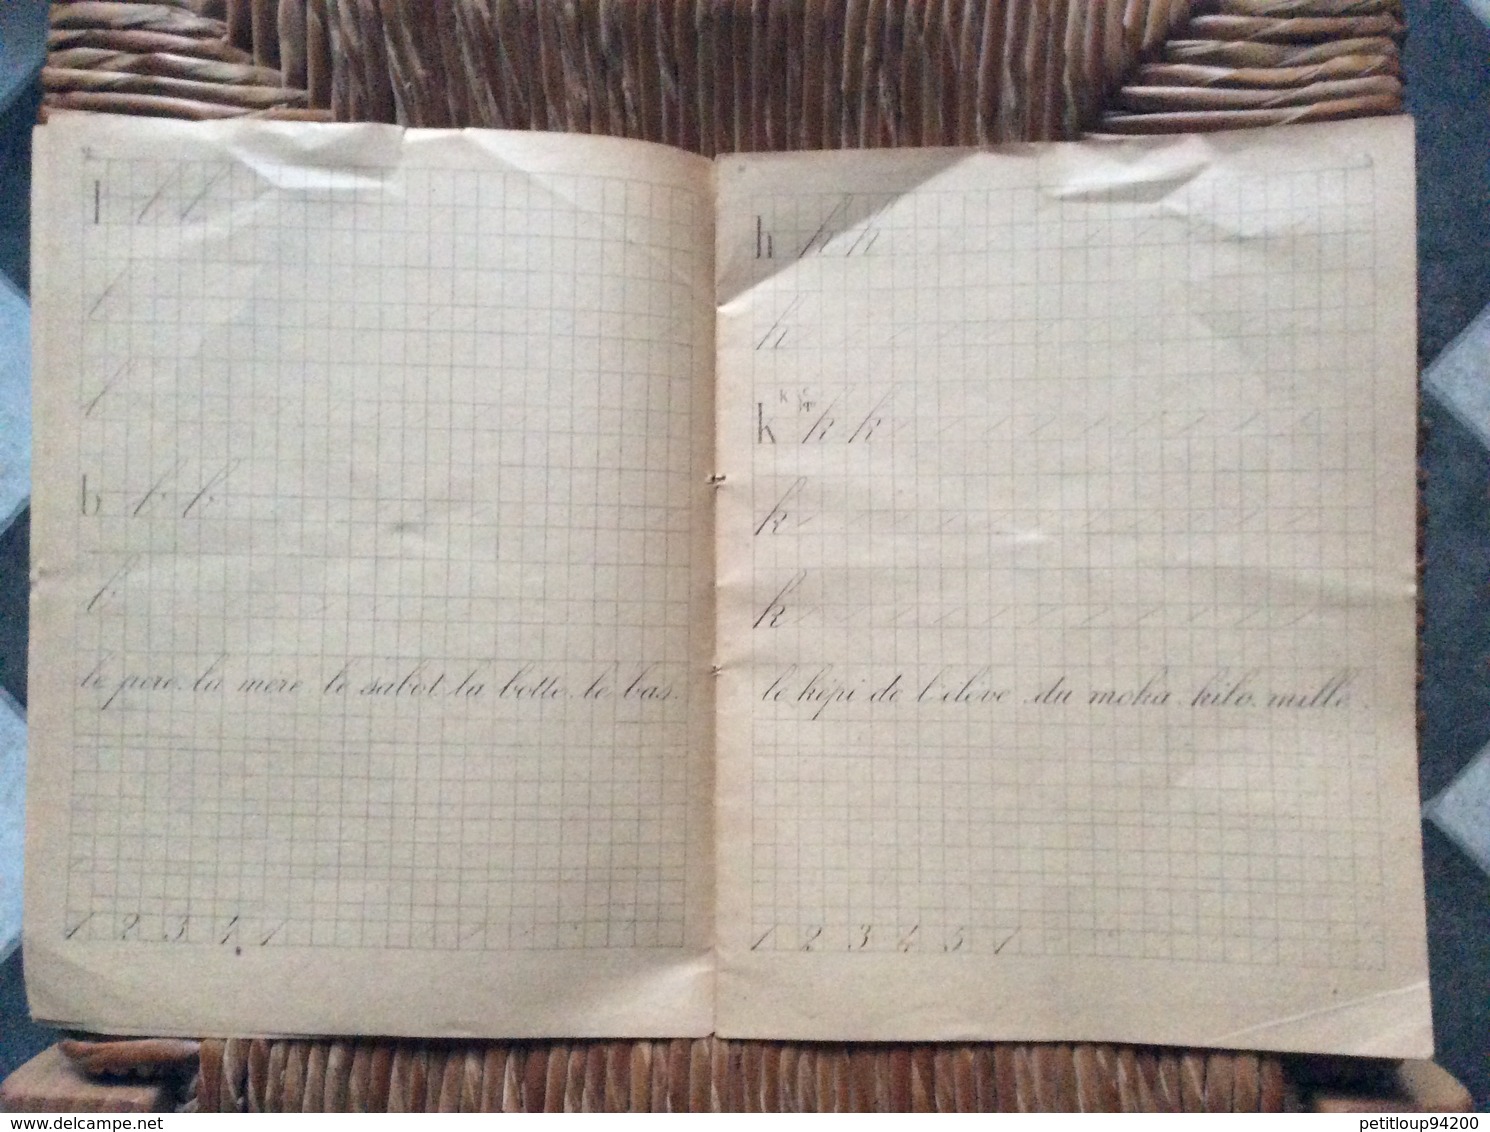 l l l
l
l
b b b
b
le père. la mère. le sabot. la botte. le bas.
1 2 3 4 1
h h h
h
k k k
k k
k
k
le képi de l'élève. du moka. kilo. mille.
1 2 3 4 5 1
www.delcampe.net
petitloup94200